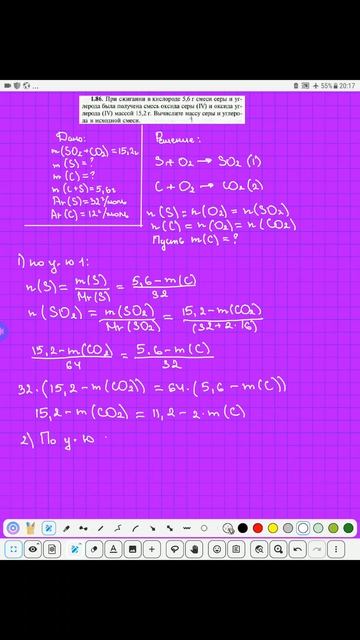 55% 20:17
1.86. При сжигании в кислороде 5,6 г смеси серы и уг-
лерода была получена смесь оксида серы (IV) и оксида уг-
лерода (IV) массой 15,2 г. Вычислите массу серы и углеро-
да в исходной смеси.
Дано:
m(SO₂+CO₂)=15,2г
m(S)=?
m(C)=?
m(C+S)=5,6г
Ar(S)=32г/моль
Ar(C)=12г/моль
Решение:
S+O₂→SO₂(1)
C+O₂→CO₂(2)
n(S)=n(O₂)=n(SO₂)
n(C)=n(O₂)=n(CO₂)
Пусть m(C)=?
1) по у.-ю 1:
n(S)=m(S)/Mr(S)=5,6-m(C)/32
n(SO₂)=m(SO₂)/Mr(SO₂)=15,2-m(CO₂)/(32+2·16)
15,2-m(CO₂)/64=5,6-m(C)/32
32·(15,2-m(CO₂))=64·(5,6-m(C))
15,2-m(CO₂)=11,2-2·m(C)
2) По у.-ю